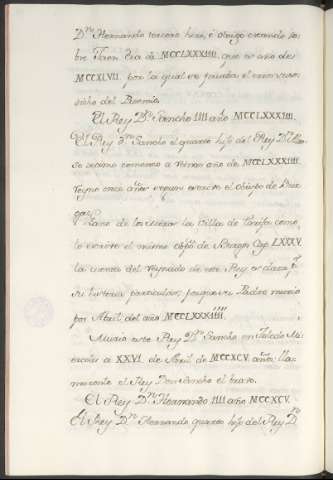 Dn Hernando tercero hizo, é otorgo estando so-
bre Jaen Era de MCCLXXXIIII, que es año de
MCCXLVII. por la qual se prueba el mismo reve-
timiho del
El Rey Dn Sancho IIII año MCCLXXXIIII.
El Rey Dn Sancho el quarto hijo del Rey Dn Alon-
so decimo comenzo a Reinar año de MCCLXXXIIII.
Reyno once años segun escrive el obispo de Bur-
gos,
Gano de los moros la Villa de Tarifa como
lo escrive el mismo obpo de Burgos Cap. LXXXV.
la cuenta del Reynado de este Rey es clara pr
su historia particular, porque su Padre murio
por Abril del año MCCLXXXIIII.
Murio este Rey Dn Sancho en Toledo Mi-
ercoles a XXVI de Abril de MCCXCV. años, lla-
maronle el Rey Don Sancho el bravo.
El Rey Dn Hernando IIII año MCCXCV.
El Rey Dn Hernando quarto hijo del Rey Dn